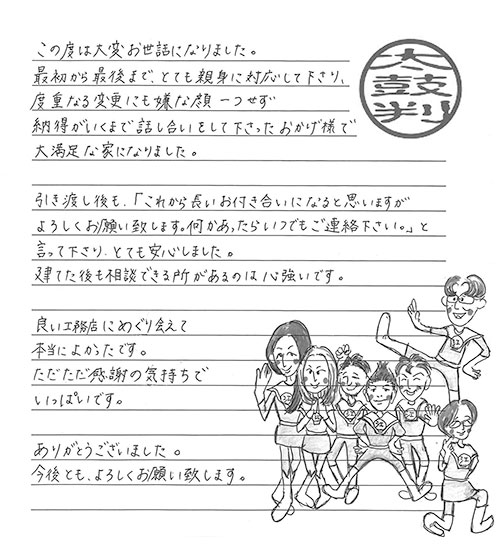 この度は大変お世話になりました。
太鼓判
最初から最後まで、とても親身に対応して下さり、
度重なる変更にも嫌な顔一つせず
納得がいくまで話し合いをして下さったおかげ様で
大満足な家になりました。
引き渡し後も、「これから長いお付き合いになると思いますが
よろしくお願い致します。何かあったらいつでもご連絡下さい。」と
言って下さり、とても安心しました。
建てた後も相談できる所があるのは心強いです。
良い工務店にめぐり会えて
本当によかったです。
ただただ感謝の気持ちで
いっぱいです。
ありがとうございました。
今後とも、よろしくお願い致します。